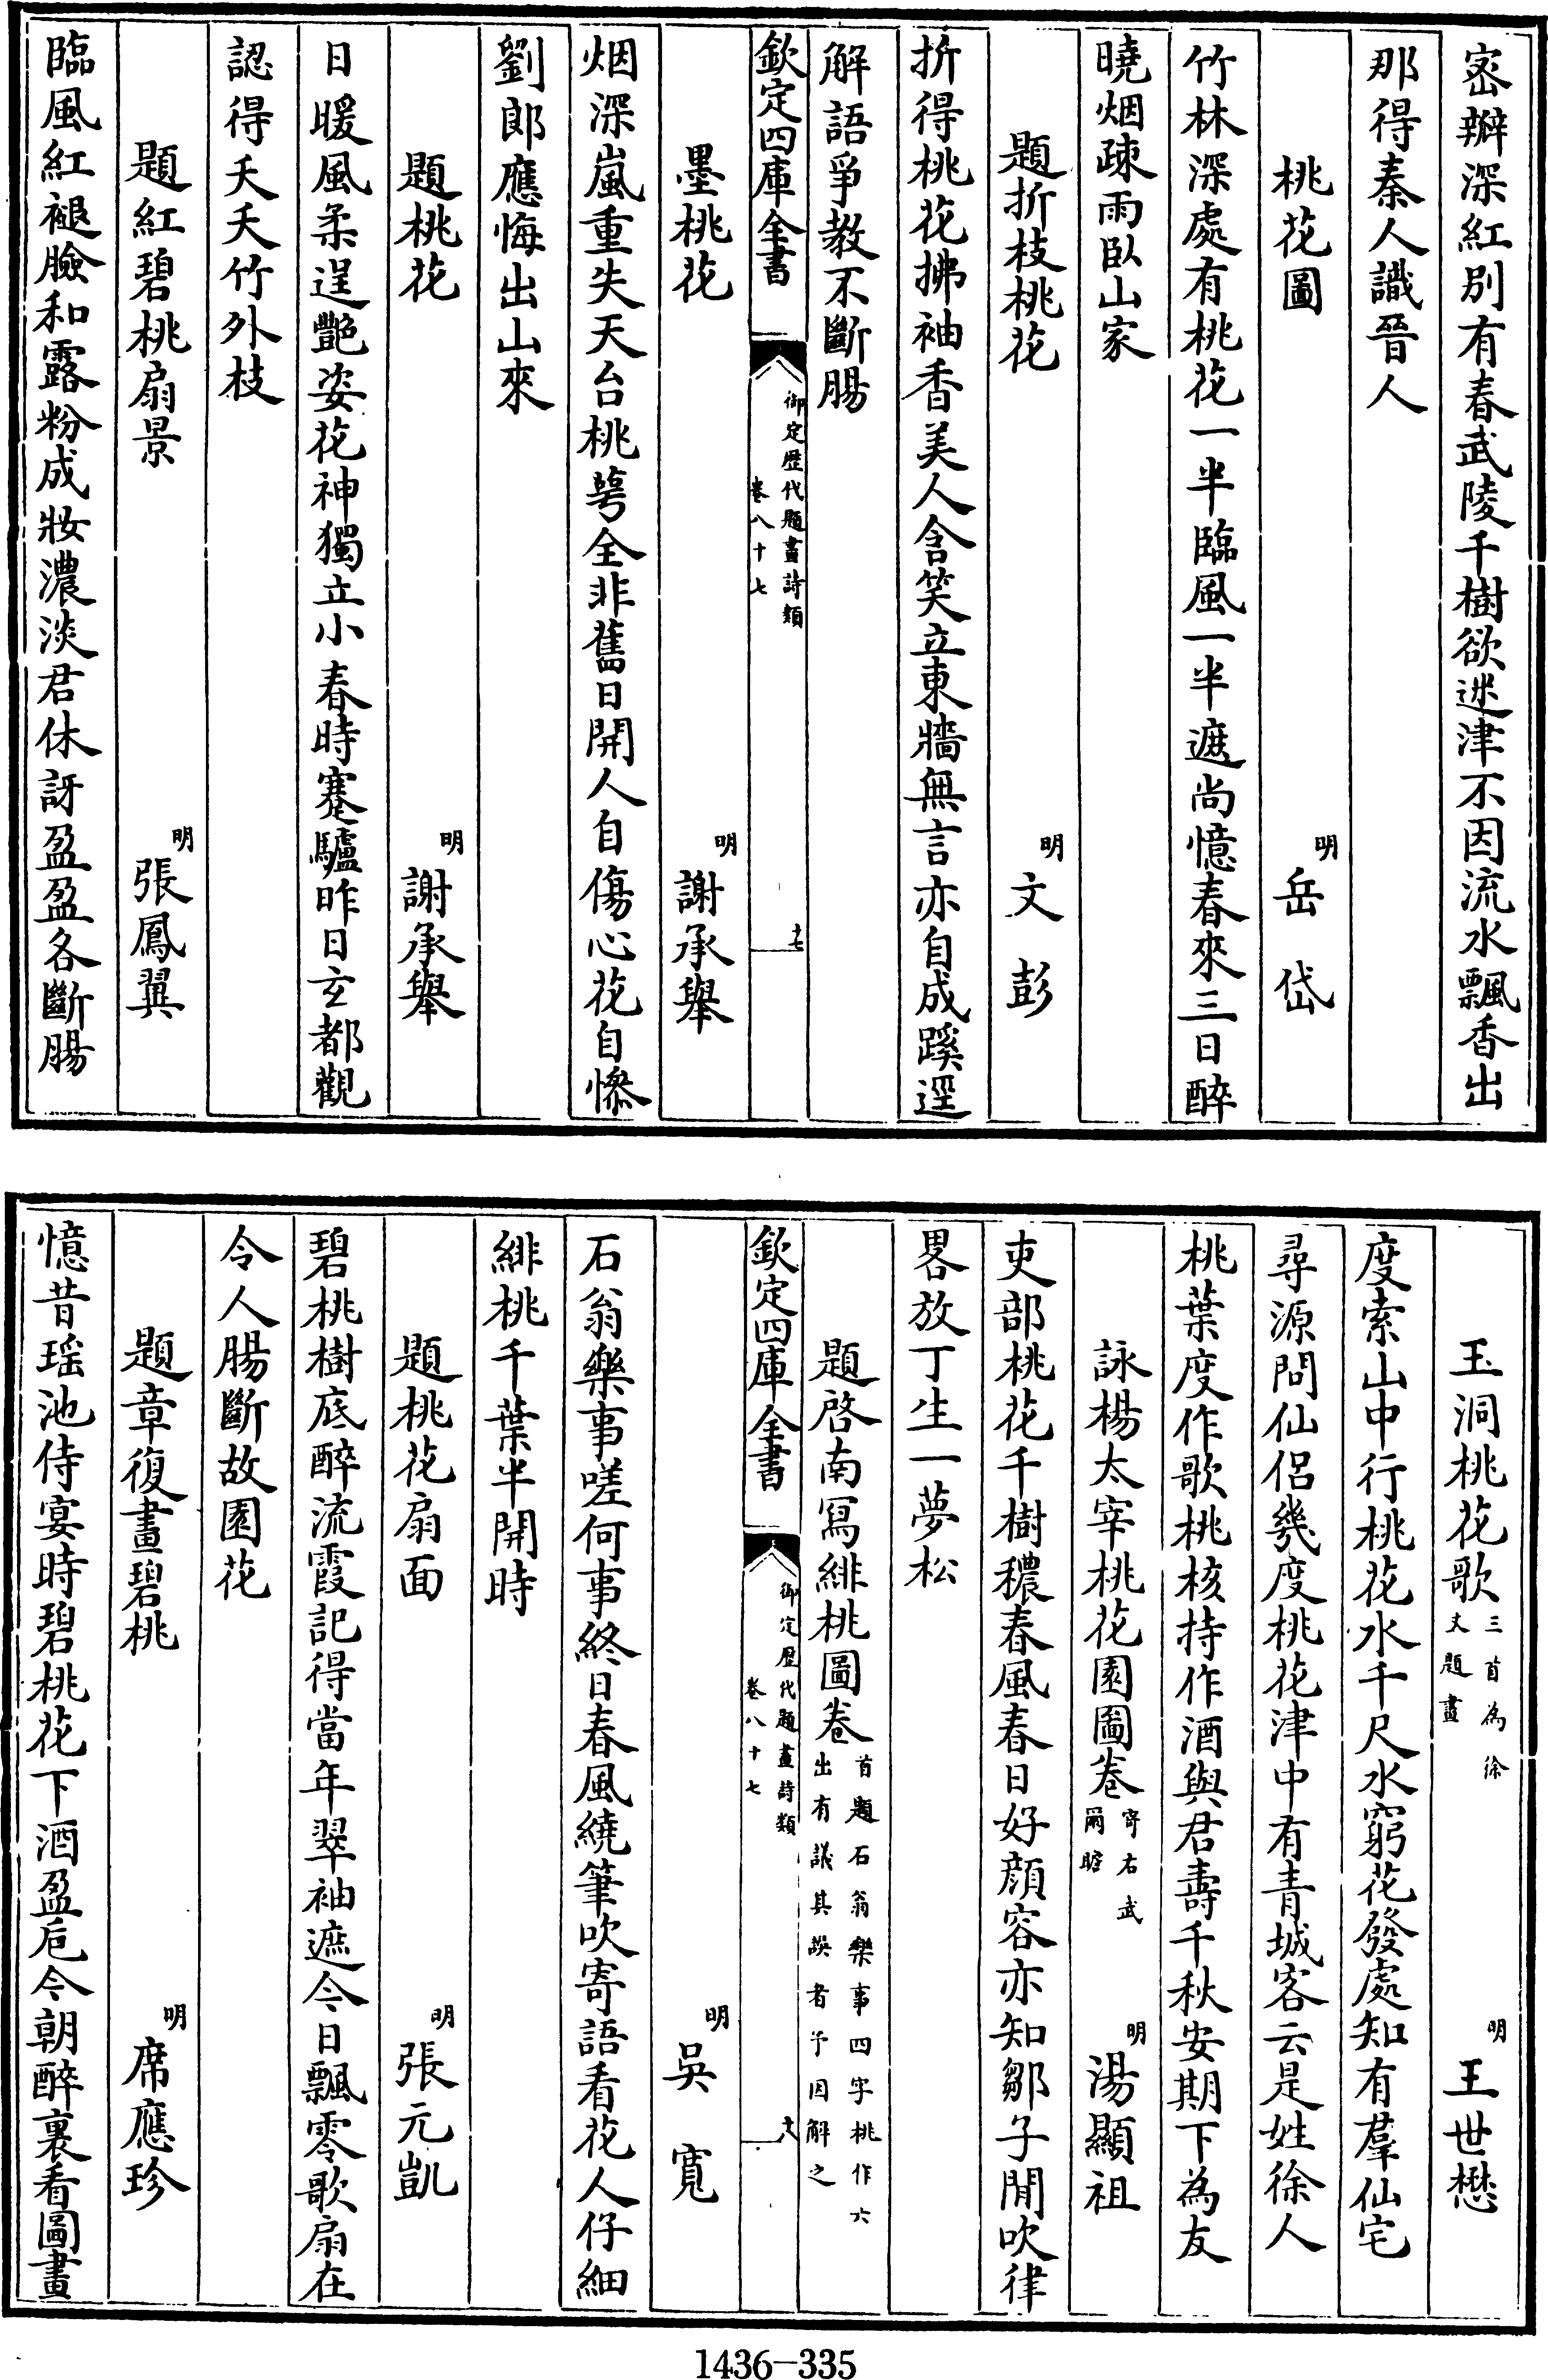 宻辦深紅别有春武陵千樹欲迷津不因流水飄香出
那得秦人識晉人
桃花圖 明 岳岱
竹林深處有桃花一半臨風一半遮尚憶春來三日醉
曉烟疎雨臥山家
題折枝桃花 明 文彭
折得桃花拂袖香美人含笑立東牆無言亦自成蹊逕
解語爭教不斷腸
欽定四庫全書 御定歷代題畫詩類 卷八十七 十七
墨桃花 明 謝承舉
烟深嵐重失天台桃萼全非舊日開人自傷心花自慘
劉郎應悔出山來
題桃花 明 謝承舉
日暖風柔逞艷姿花神獨立小春時蹇驢昨日玄都觀
認得夭夭竹外枝
題紅碧桃扇景 明 張鳳翼
臨風紅褪臉和露粉成妝濃淡君休訝盈盈各斷腸
玉洞桃花歌 三首為徐丈題畫 明 王世懋
度索山中行桃花水千尺水窮花發處知有羣仙宅
尋源問仙侶幾度桃花津中有青城客云是姓徐人
桃葉度作歌桃核持作酒與君壽千秋安期下為友
詠楊太宰桃花園圖卷 寄右武爾瞻 明 湯顯祖
吏部桃花千樹穠春風春日好顔容亦知鄒子閒吹律
畧放丁生一夢松
題啓南寫緋桃圖卷 首題石翁樂事四字桃作六出有議其誤者予因解之
欽定四庫全書 御定歷代題畫詩類 卷八十七 十八
明 吳寬
石翁樂事嗟何事終日春風繞筆吹寄語看花人仔細
緋桃千葉半開時
題桃花扇面 明 張元凱
碧桃樹底醉流霞記得當年翠袖遮今日飄零歌扇在
令人腸斷故園花
題章復畫碧桃 明 席應珍
憶昔瑶池侍宴時碧桃花下酒盈巵今朝醉裏看圖畫
1436-335